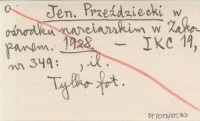 Jen. Przeździecki w
ośrodku narciarskim w Zako-
panem. 1928. — IKC 19,
nr 349: , il.
Tylko fot.